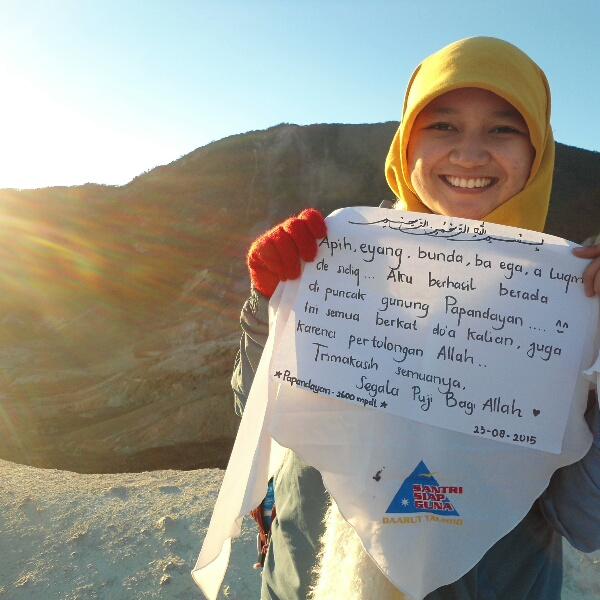 بسم الله الرحمن الرحيم
Apih, eyang, bunda, ba ega, a Luqm
de sidiq... Aku berhasil berada
di puncak gunung Papandayan.... ^^
ini semua berkat do'a kalian, juga
karena pertolongan Allah..
Trimakasih semuanya,
Segala Puji Bagi Allah ♥
★Papandayan - 2600 mpdl★
23-08-2015
SANTRI
SIAP
GUNA
DAARUT TAUHIID